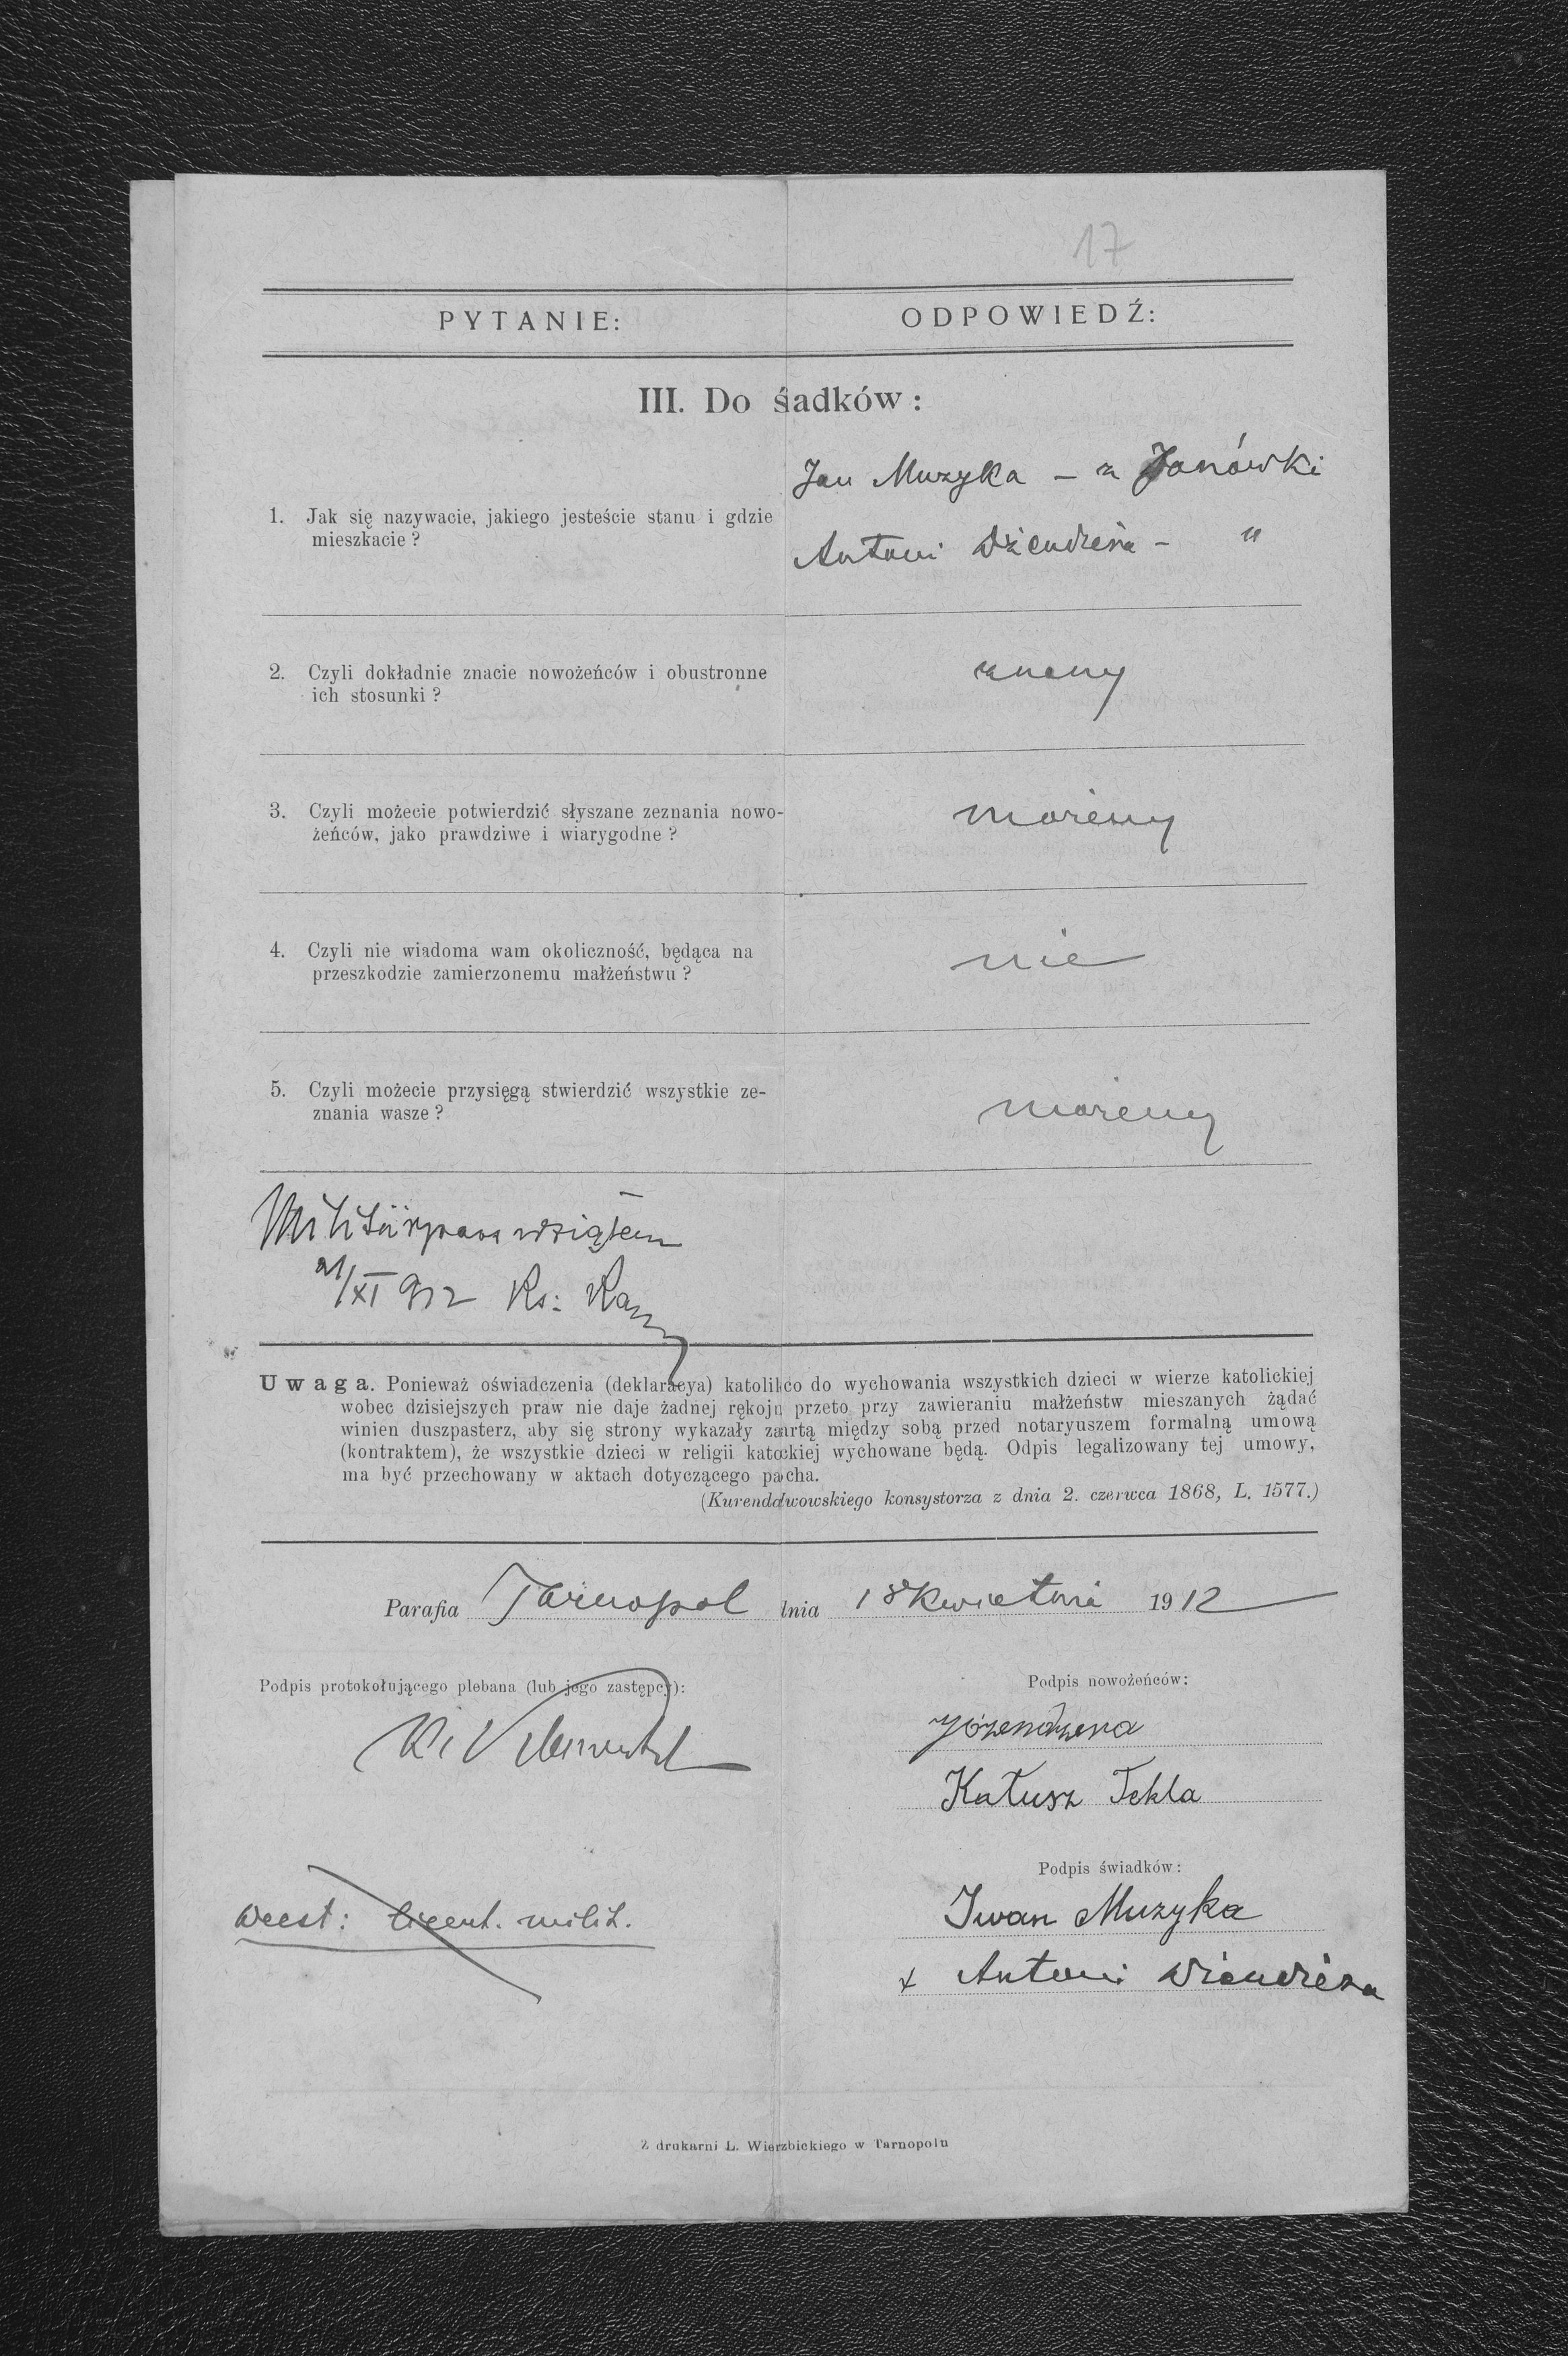 17
PYTANIE:
ODPOWIEDŹ:
III. Do śadków:
1. Jak się nazywacie, jakiego jesteście stanu i gdzie
mieszkacie?
Jan Muzyka – z Janówki
Antoni – "
2. Czyli dokładnie znacie nowożeńców i obustronne
ich stosunki?
znamy
3. Czyli możecie potwierdzić słyszane zeznania nowo-
żeńców, jako prawdziwe i wiarygodne?
możemy
4. Czyli nie wiadoma wam okoliczność, będąca na
przeszkodzie zamierzonemu małżeństwu?
nie
5. Czyli możecie przysięgą stwierdzić wszystkie ze-
znania wasze?
możemy
wziąłem
21/XI 912 Ks:
Uwaga. Ponieważ oświadczenia (deklaracya) katolikco do wychowania wszystkich dzieci w wierze katolickiej
wobec dzisiejszych praw nie daje żadnej rękojn przeto przy zawieraniu małżeństw mieszanych żądać
winien duszpasterz, aby się strony wykazały zaartą między sobą przed notaryuszem formalną umową
(kontraktem), że wszystkie dzieci w religii katockiej wychowane będą. Odpis legalizowany tej umowy,
ma być przechowany w aktach dotyczącego pacha.
(Kurendalwowskiego konsystorza z dnia 2. czerwca 1868, L. 1577.)
Parafia Tarnopol dnia 18 kwietnia 1912
Podpis protokołującego plebana (lub jego zastępcy):
Podpis nowożeńców:
Katusz Tekla
Podpis świadków:
Iwan Muzyka
weest: licent. milit.
+ Antoni
Z drukarni L. Wierzbickiego w Tarnopolu